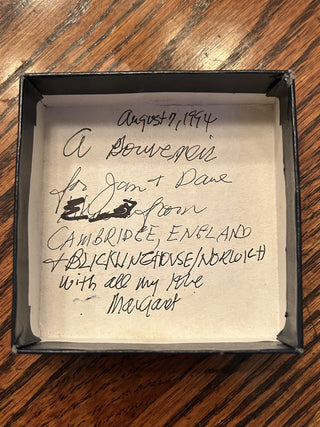 August 7, 1994
A Souvenir
for Jan + Dave
from
CAMBRIDGE, ENGLAND
+ BLICKLINGHOUSE/NORWICH
with all my love
Margaret